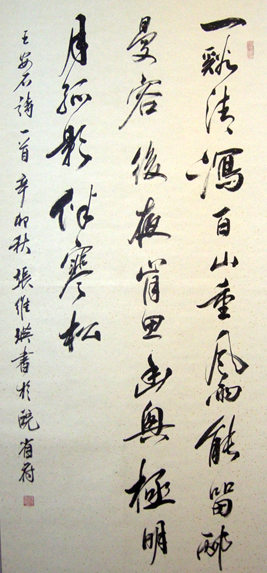 一谿清瀉百山重風雨能留邴
曼容後夜肯思幽興極明
月孤影伴寒松
王安石詩一首辛卯秋張維瑛書於皖省府